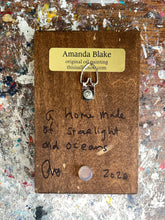 Amanda Blake
original oil painting
a home made
of starlight
and oceans
2020